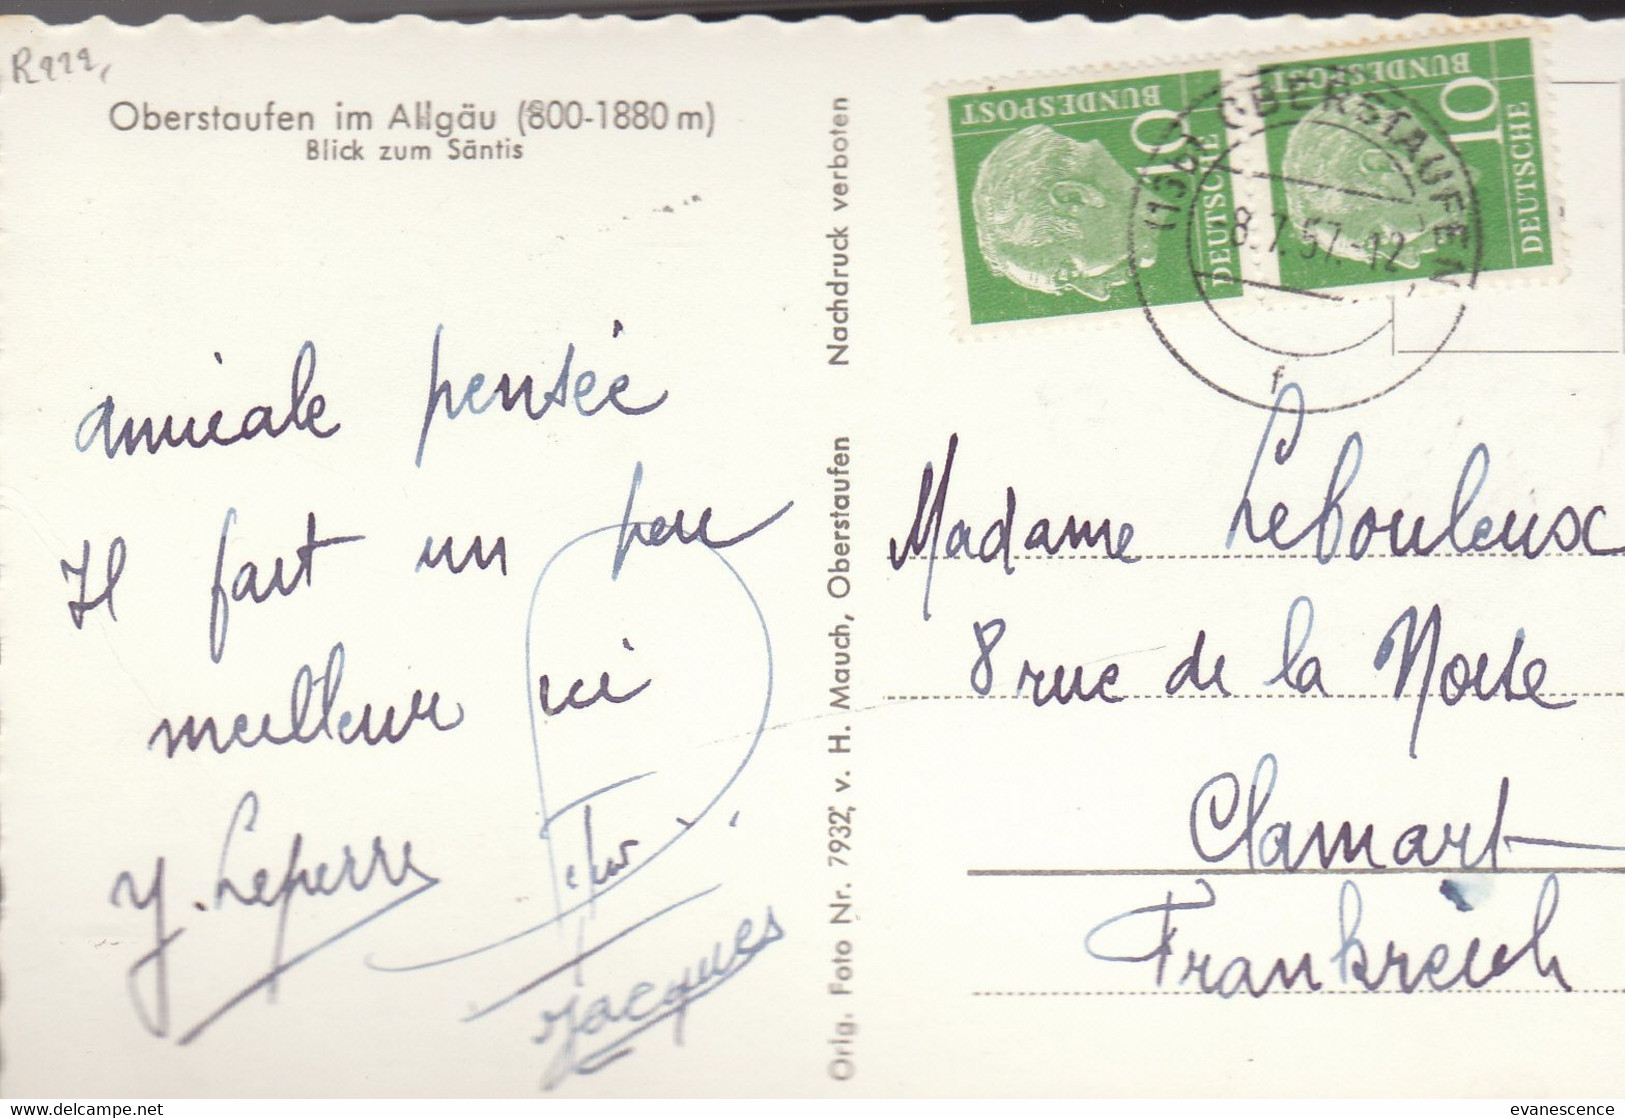 Oberstaufen im Allgäu (800-1880 m)
Blick zum Säntis
amicale pensée
Il fait un peu
meilleur ici
Y. Leperre
Jacques
Orig. Foto Nr. 7932, v. H. Mauch, Oberstaufen Nachdruck verboten
DEUTSCHE
BUNDESPOST
10
DEUTSCHE
BUNDESPOST
10
OBERSTAUFEN
8.7.57.-12
f
Madame Lebouleux
8 rue de la
Clamart
Frankreich
evanescence